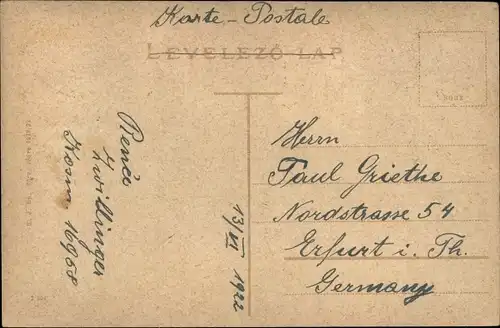 Karte-Postale
LEVELEZŐ-LAP
Renée
Zwillinger
16968
13/VI 1922
Herrn
Paul Griethe
Nordstrasse 54
Erfurt i. Th.
Germany